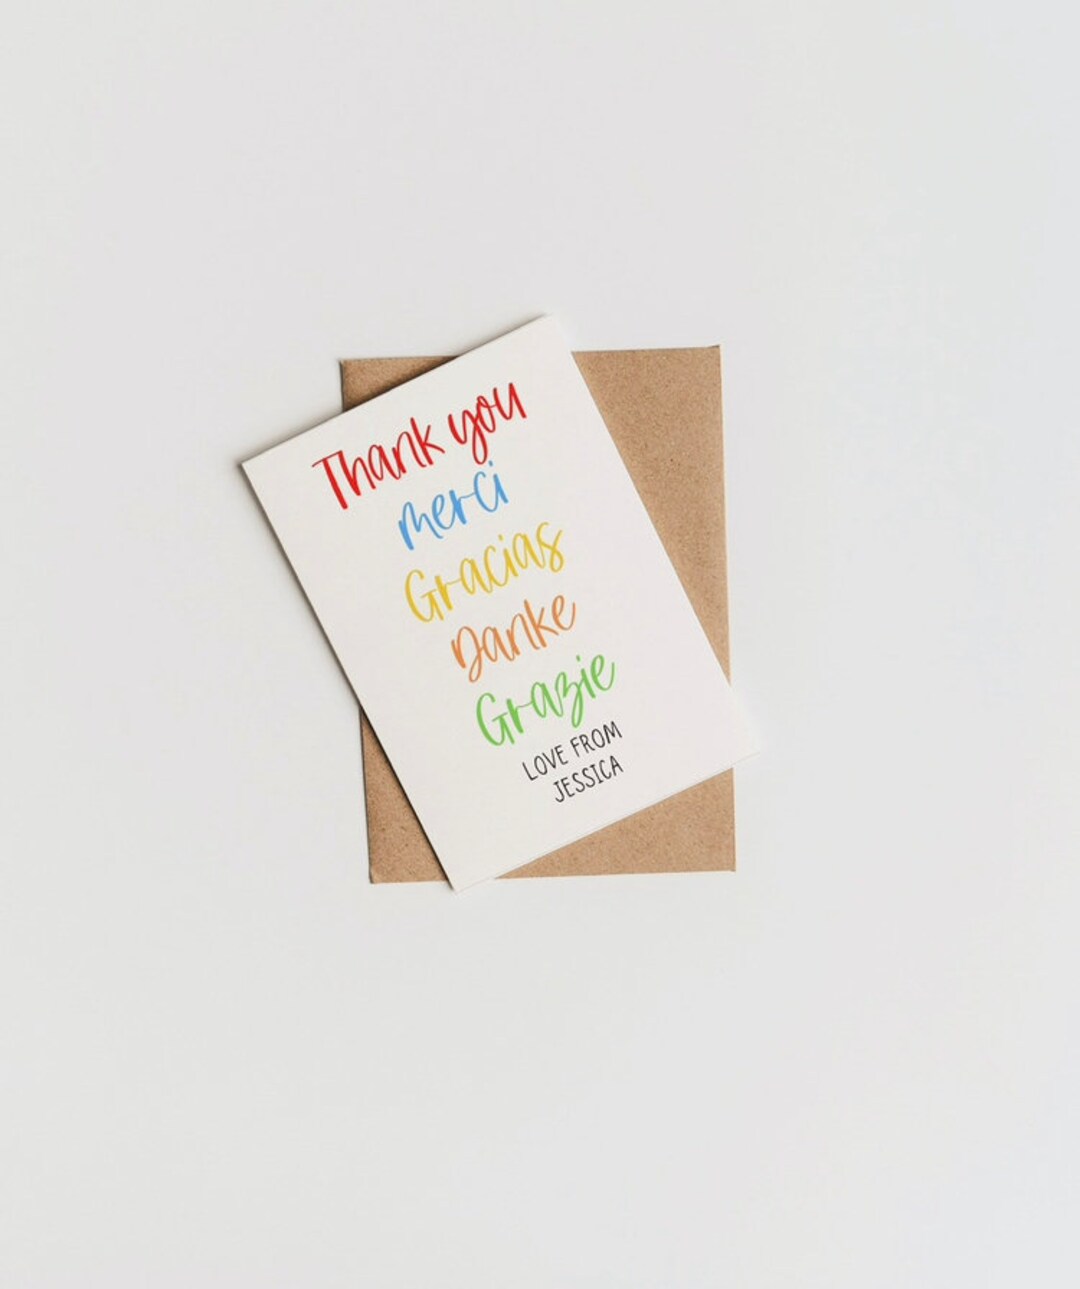 Thank you
merci
Gracias
Danke
Grazie
LOVE FROM
JESSICA